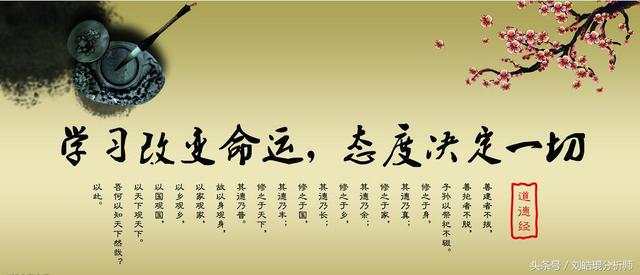 学习改变命运，态度决定一切
道德经
善建者不拔，
善抱者不脱，
子孙以祭祀不辍。
修之于身，
其德乃真；
修之于家，
其德乃余；
修之于乡，
其德乃长；
修之于国，
其德乃丰；
修之于天下，
其德乃普。
故以身观身，
以家观家，
以乡观乡，
以国观国，
以天下观天下。
吾何以知天下然哉？
以此。
头条号 / 刘皓琨分析师